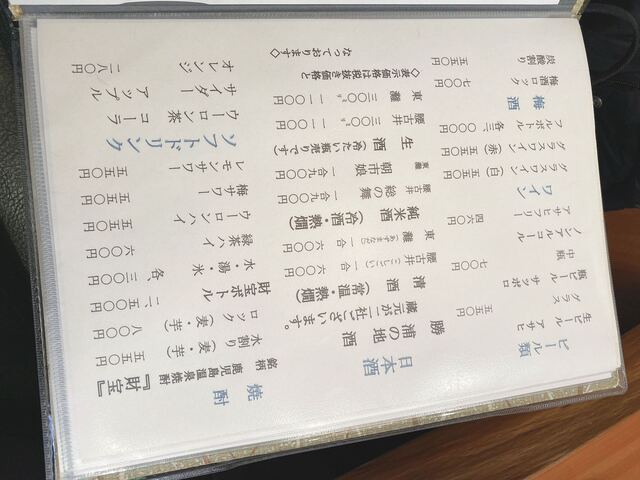 ビール類
生ビール アサヒ
グラス 五五〇円
瓶ビール サッポロ
中瓶 七〇〇円
ノンアルコール
アサヒフリー 四六〇円
ワイン
グラスワイン(白)五五〇円
グラスワイン(赤)五五〇円
フルボトル 各三、〇〇〇円
梅酒
梅酒ロック 七〇〇円
炭酸割り 五五〇円
日本酒
勝浦の地酒
蔵元が二社ございます。
清酒(常温・熱燗)
腰古井(こしごい)一合 六〇〇円
東灘(あずまなだ)一合 六〇〇円
純米酒(冷・熱燗)
腰古井 総の舞 一合九〇〇円
東灘 朝市娘 一合九〇〇円
生酒(冷たい瓶売りです)
腰古井 三〇〇㎖ 一一〇〇円
東灘 三〇〇㎖ 一一〇〇円
◇表示価格は税抜き価格と
なっております◇
焼酎
銘柄 鹿児島温泉焼酎『財宝』
水割り(麦・芋)五五〇円
ロック(麦・芋)八〇〇円
財宝ボトル 二、五〇〇円
水・湯・氷 各、三〇〇円
緑茶ハイ 六〇〇円
ウーロンハイ 五五〇円
梅サワー 五五〇円
レモンサワー 五五〇円
ソフトドリンク
ウーロン茶 コーラ
サイダー アップル
オレンジ 二八〇円